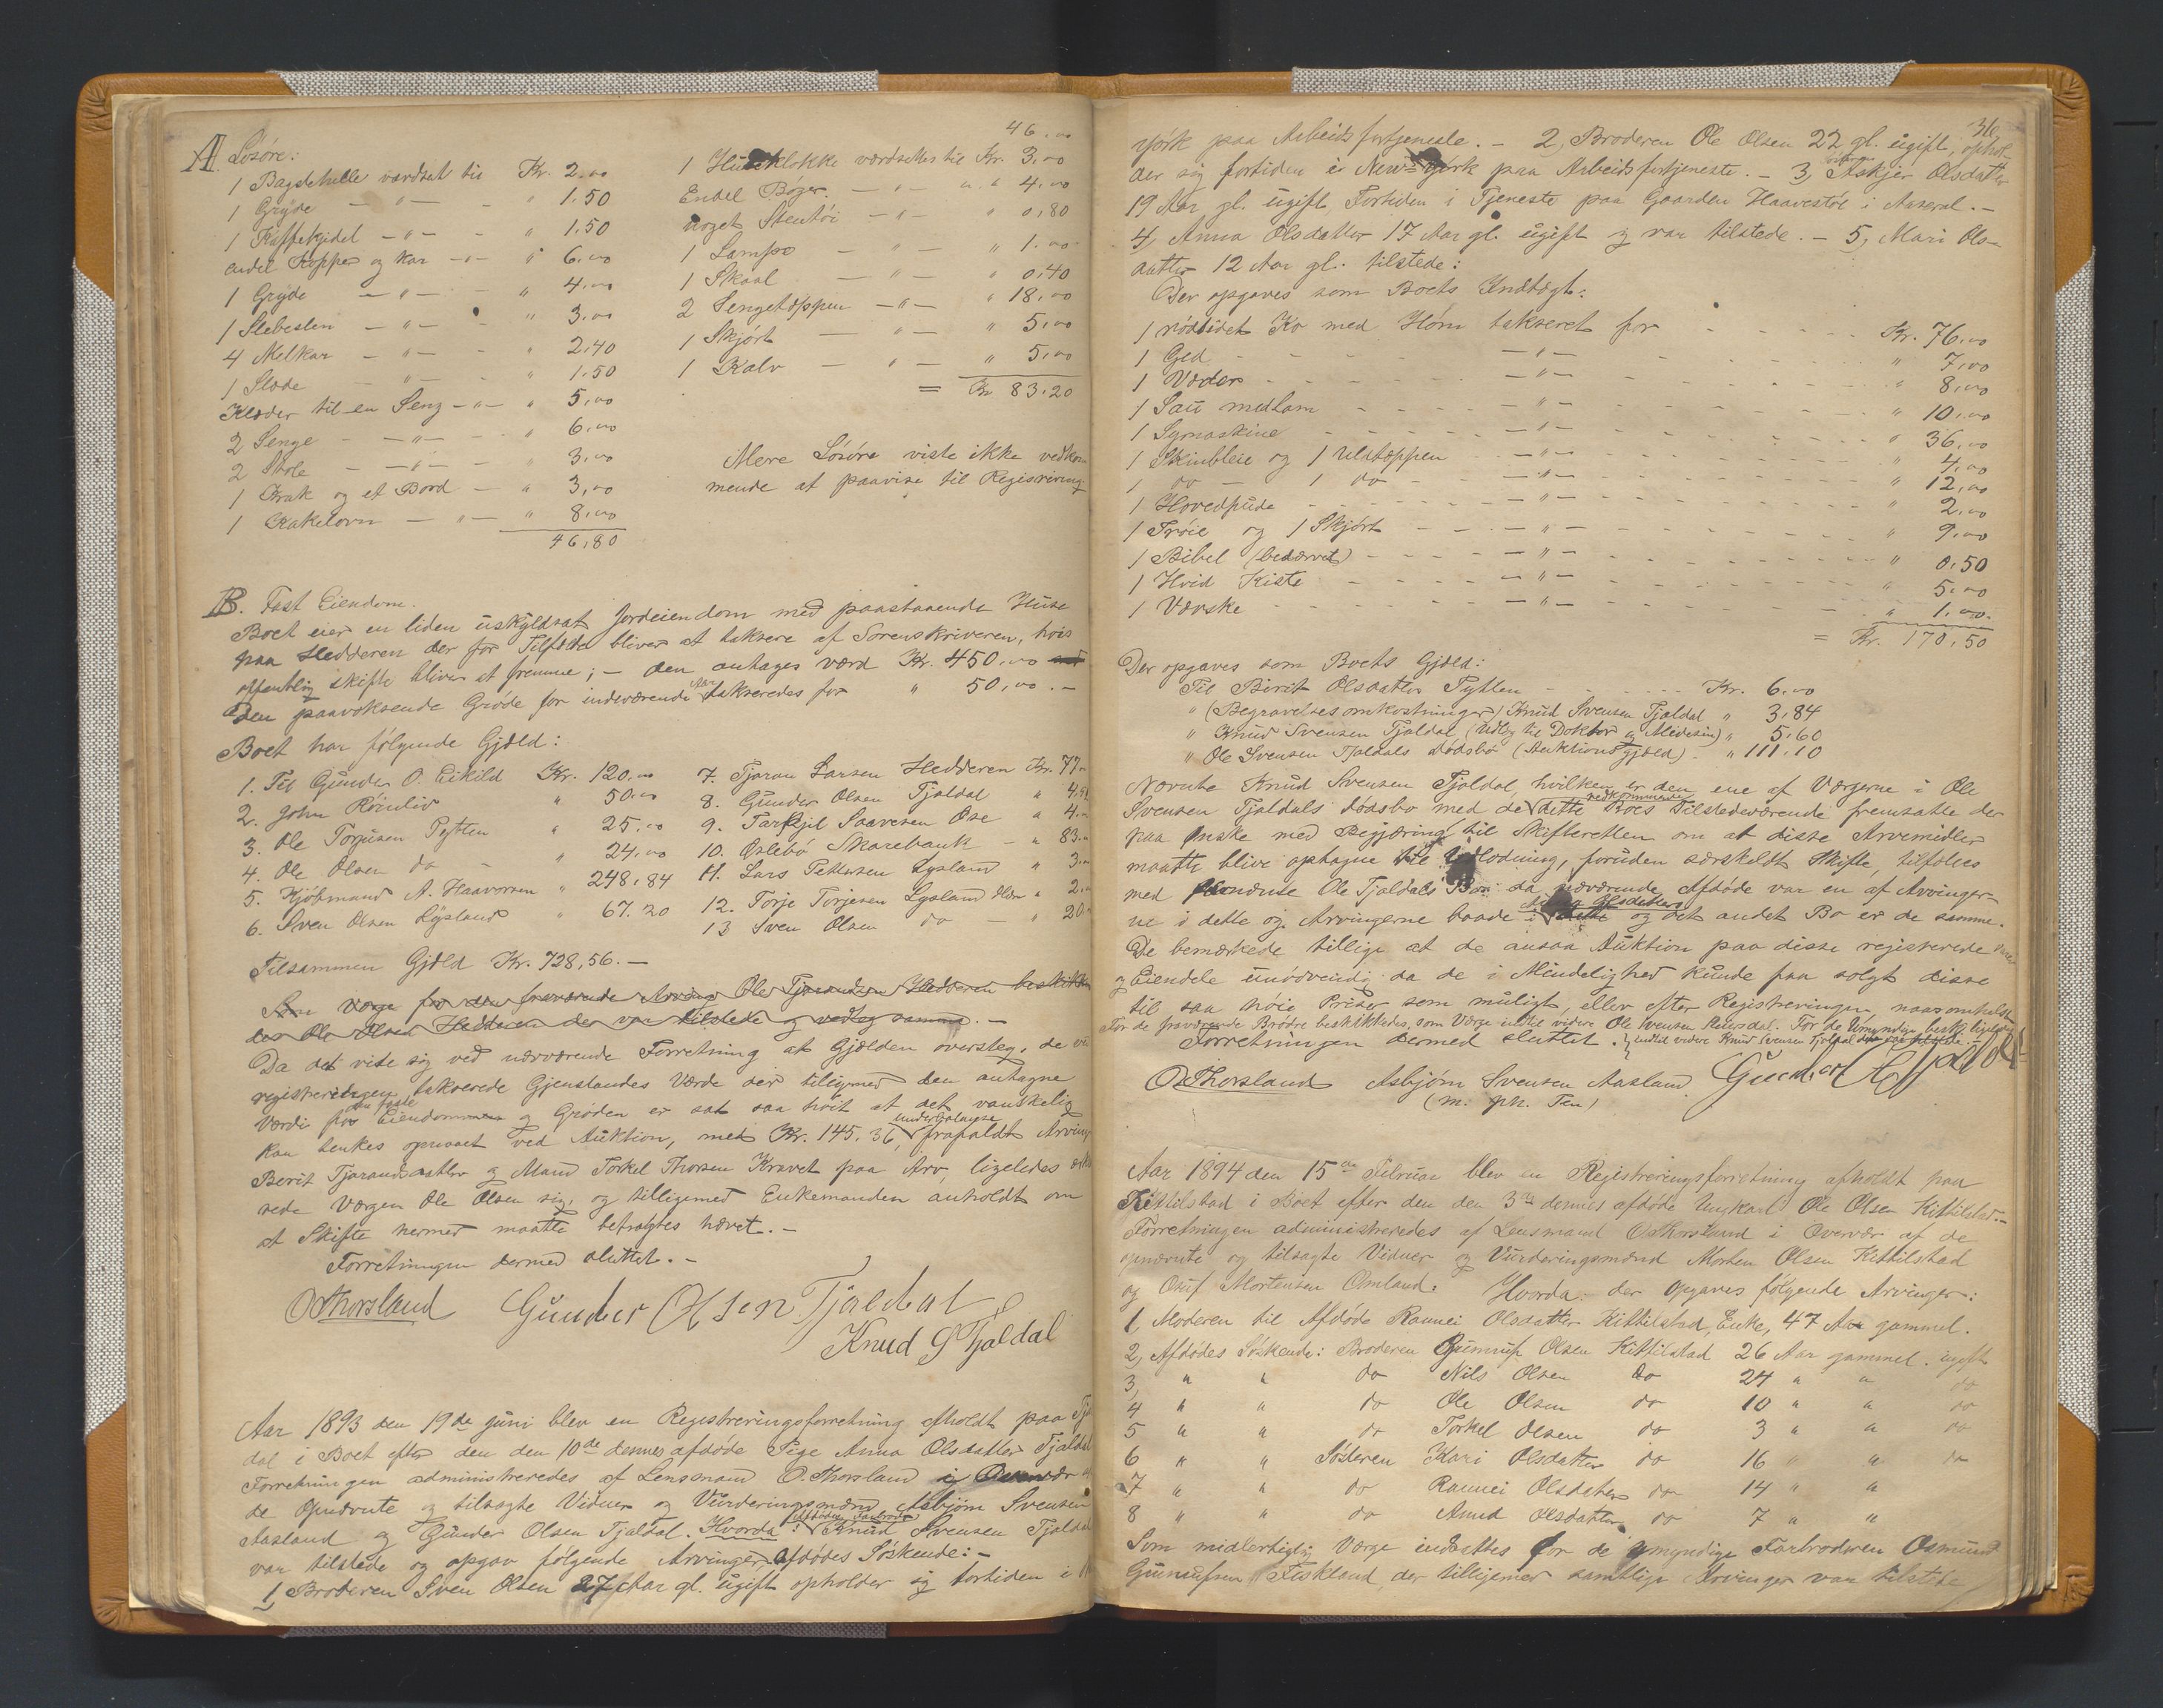 A. Løsøre:
1 Bagstehelle værdsat til Kr. 2.00
1 Gryde — " — - " 1.50
1 Kaffekjedel — " — - " 1.50
endel Kopper og Kar — " — " 6.00
1 Gryde — " — - " 4.00
1 Slebesten — " — - " 3.00
4 Melkar — " — - " 2.40
1 Slæde — " — - " 1.50
Klæder til en Seng — " — " 5.00
2 Senge - — " — - - " 6.00
2 Stole - — " — - " 3.00
1 Krak og et Bord — " 3,00
1 Kakelovn — " — " 8.00
46,80
46.00
1 Husklokke værdsættes til Kr. 3.00
Endel Bøger — " — " " 4.00
noget Stentøi — " — " 0,80
1 Lampe — " — " 1.00
1 Skaal — " — " 0.40
2 Sengetæppen — " — " 18.00
1 Skjørt — " — " 5.00
1 Kalv — " — " 5.00
= Kr 83.20
Mere Løsøre viste ikke vedkom
mende at paavise til Registrering.
B. Fast Eiendom.
Boet eier en liden uskyldsat Jordeiendom med paastaaende Huse
paa Hedderen der for Tilfælde bliver at taksere af Sorenskriveren, hvis
offentlig skifte bliver at fremme; — den antages værd Kr. 450,00
Den paavoksende Grøde for indeværende Aar takseredes for " 50,00. —
Boet har følgende Gjæld:
1. Til Gunder O. Eikild Kr. 120.00
2. John Røinlid " 50.00
3. Ole Torjusen Pytten " 25,00
4. Ole Olsen do - " 24,00
5. Kjøbmand A. Haavorsen " 248,84
6. Sven Olsen Lysland " 67.20
7. Tjøran Larsen Hedderen Kr. 77
8. Gunder Olsen Tjaldal "
9. Tarkjil Saavesen Ose " 4.
10. Øslebø Skarebank — " 83.
11. Lars Pettersen Lysland " 3.
12. Torje Torjesen Lysland " 2.
13 Sven Olsen do — " 20
Tilsammen Gjæld Kr. 728,56. —
Som Værge for den fraværende Arving Ole Tjøranden Hedderen beskikke
des Ole Olsen Hedderen der var tilstede og vedtog samme. —
Da det viste sig ved nærværende Forretning at Gjælden oversteg, de
registreringen, takserede Gjenstandes Værde der tilligemed den antagne
Værdi for den faste Eiendommen og Grøden er sat saa høit at det vanskelig
kan tenkes opnaaet ved Auktion, med Kr. 145.36, underbalangse frafaldt Arving
Berit Tjøransdatter og Mand Torkel Thorsen Kravet paa Arv, ligeledes
rede Værgen Ole Olsen sig, og tilligemed Enkemanden anholdt om
at Skifte hermed maatte betragtes hævet. —
Forretningen dermed sluttet. —
O Thorsland Gunder Olsen Tjaldal
Knud S Tjaldal
Aar 1893 den 19de juni blev en Registreringsforretning afholdt paa Tjal
dal i Boet efter den den 10de dennes afdøde Pige Anna Olsdatter Tjaldal
Forretningen administreredes af Lensmand O. Thorsland i Overvær af
de Opnævnte og tilsagte Vidner og Vurderingsmænd Asbjørn Svensen
Aasland og Gunder Olsen Tjaldal. Hvorda: Afdødes Farbroder Knud Svensen Tjaldal
var tilstede og opgav følgende Arvinger Afdødes Søskende: —
1, Broderen Sven Olsen 27 Aar gl. ugift opholder sig fortiden i
36
york paa Arbeidsfortjeneste. — 2, Broderen Ole Olsen 22 gl. ugift, ophol-
der sig fortiden i New-york paa Arbeidsfortjeneste. — 3, Søsteren Askjer Olsdatter
19 Aar gl. ugift Fortiden i Tjeneste paa Gaarden Haavestøl i Aaseral. —
4, Anna Olsdatter 17 Aar gl. ugift og var tilstede. — 5, Mari Ols-
datter 12 Aar gl. tilstede:
Der opgaves som Boets Indtægt:
1 rødsidet Ko med Horn takseret for - - - - Kr. 76,00
1 Ged - - - — " — - - - " 7,00
1 Væder - - - — " — - - - " 8,00
1 Sau medlam - - - — " — - - - " 10,00
1 Symaskine - - - — " — - - - " 36,00
1 Skinbleie og 1 Uldtæppen - — " — - - - " 4,00
1 do — 1 do - - — " — - - - " 12,00
1 Hovedpude - - - — " — - - - " 2,00
1 Trøie og 1 Skjørt - - - — " — - - - " 9,00
1 Bibel (bedærvet) - - - — " — - - - " 0,50
1 Hvid Kiste - - - — " — - - - " 5,00
1 Værske - - - — " — - - - " 1.00.
= Kr. 170,50
Der opgaves som Boets Gjæld:
Til Birit Olsdatter Pytten - - - - - Kr. 6.00
" (Begravelsesomkostninger) Knud Svensen Tjaldal " 3,84
" Knud Svensen Tjaldal, (Udlæg til Doktor og Medesin) " 5,60
" Ole Svensen Tjaldals dødsbo (Auktionsgjæld) - " 111.10
Nævnte Knud Svensen Tjaldal, hvilken er den ene af Værgerne i Ole
Svensen Tjaldals dødsbo med de dette vedkommende Boes Tilstedeværende fremsatte der
paa Ønske med Begjæring til Skifteretten om at disse Arvemidler
maatte blive optagne til Udlodning, foruden særskildt Skifte, tilfælles
med nævnte Ole Tjaldals Bo, da nærværende Afdøde var en af Arvinger-
ne i dette og Arvingerne baade i Anna Olsdatters og det andet Bo er de samme.
De bemærkede tillige at de ansaa Auktion paa disse registrerede
og Eiendele unødvendig da de i Mindelighed kunde faa solgt disse
til saa høie Priser som muligt, eller efter Registreringen, naarsomhelst
For de fraværende Brødre beskikkedes, som Værge indtil videre Ole Svensen For de Umyndige besk. ligeledes
Forretningen dermed sluttet. indtil videre Knud Svensen Tjaldal der var tilstede. —
O Thorsland Asbjørn Svensen Aasland. Gunder O Tjaldal
(m. ph. Pen)
Aar 1894 den 15de Februar blev en Registreringsforretning afholdt paa
Kittilstad i Boet efter den den 3die dennes afdøde Ungkarl Ole Olsen Kittilstad. —
Forretningen administreredes af Lensmand O Thorsland i Overvær af de
opnævnte og tilsagte Vidner og Vurderingsmænd Morten Olsen Kittilstad
og Osuf Mortensen Omland. Hvorda: der opgaves følgende Arvinger:
1, Moderen til Afdøde Rannei Olsdatter Kittilstad, Enke, 47 Aar gammel.
2, Afdødes Søskende: Broderen Gunnuf Olsen Kittilstad 26 Aar gammel. ugift
3, " " do Nils Olsen do 24 " " do
4 " " do Ole Olsen do 10 " " do
5 " " do Torkel Olsen do 3 " " do
6 " " Søsteren Kari Olsdatter do 16 " " do
7 " " do Rannei Olsdatter do 14 " "
8 " " do Anna Olsdatter do 7 " "
Som midlertidig Værge indsattes for de Umyndige Farbroderen Osmund
Gunnufsen Fiskland, der tilligemed samtlige Arvinger var tilstede